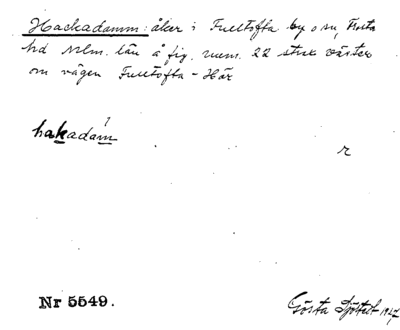 Hackadamm: åker i Fulltofta by o sn, Frosta
hd Mlm. län å fig. num. 22 strax väster
om vägen Fulltofta - Hår
hakadam
r
Nr 5549.
Gösta Sjöstedt 1947